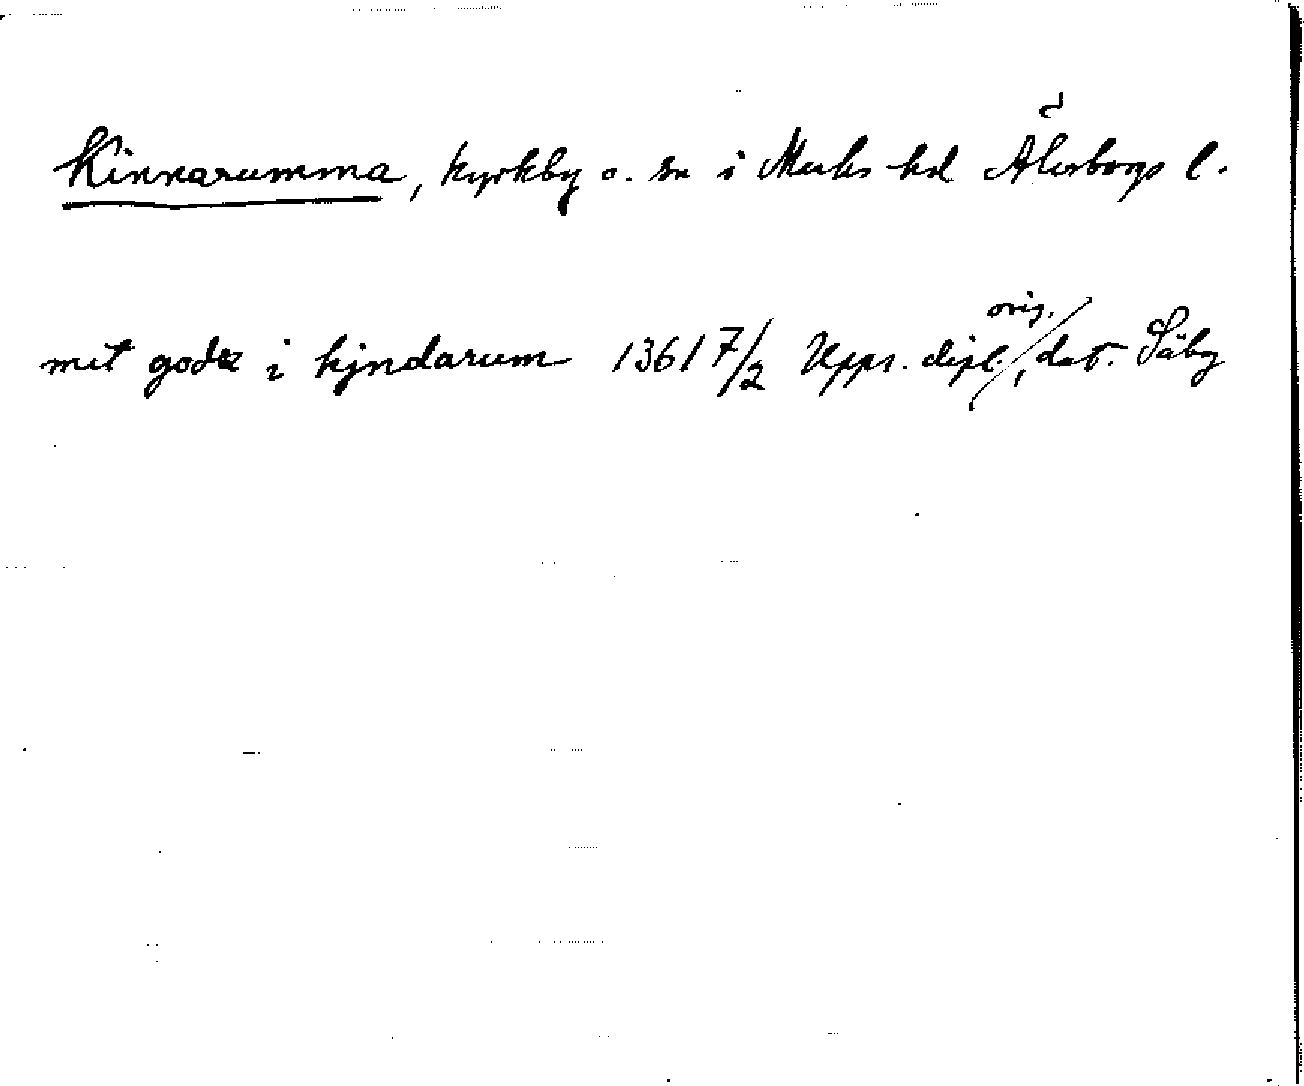 Kinnarumma, kyrkby o. sn i Marks hd Älvsborgs l.
mit godz i kyndarum 1361 7/2 Upps. dipl. orig., dat. Säby